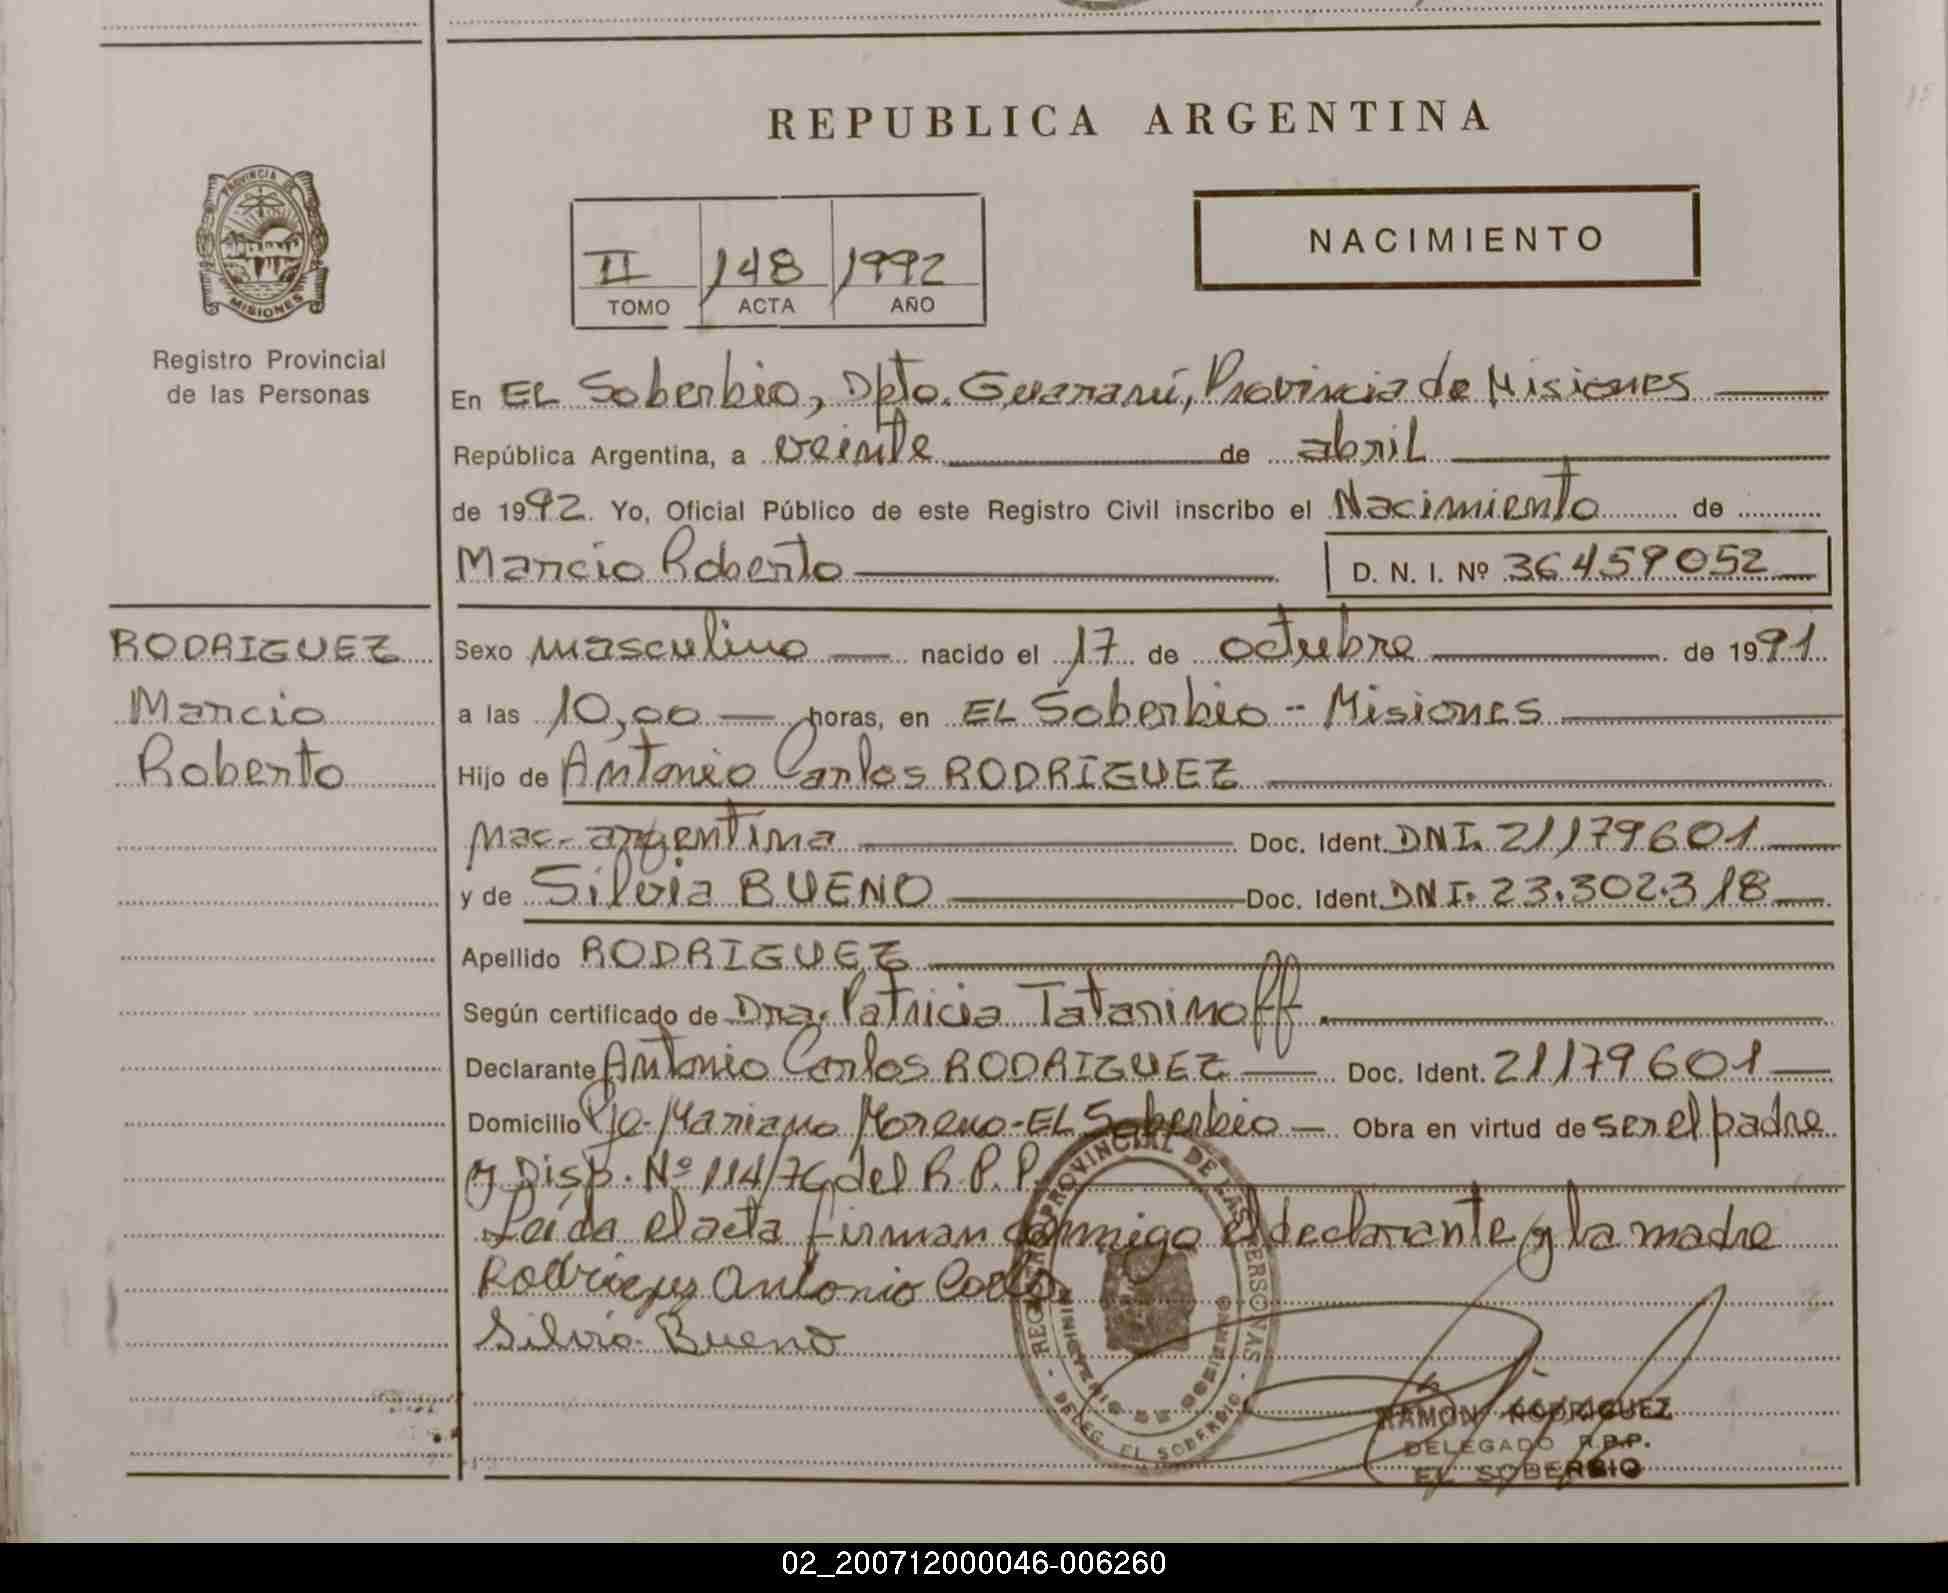 REPUBLICA ARGENTINA
PROVINCIA DE
MISIONES
Registro Provincial
de las Personas
II 148 1992
TOMO ACTA AÑO
NACIMIENTO
En EL Soberbio, Dpto. Guaraní, Provincia de Misiones
República Argentina, a veinte de abril
de 1992. Yo, Oficial Público de este Registro Civil inscribo el Nacimiento de
Marcio Roberto D. N. I. Nº 36459052
RODRIGUEZ
Marcio
Roberto
Sexo masculino nacido el 17 de octubre de 1991
a las 10,00 horas, en EL Soberbio - Misiones
Hijo de Antonio Carlos RODRIGUEZ
Nac. argentina Doc. Ident. DNI. 21179601
y de Silvia BUENO Doc. Ident. DNI. 23.302.318
Apellido RODRIGUEZ
Según certificado de Dra. Patricia Tatarinoff
Declarante Antonio Carlos RODRIGUEZ Doc. Ident. 21179601
Domicilio Pje. Mariano Moreno - EL Soberbio Obra en virtud de ser el padre
y Disp. Nº 114/76 del R.P.P.
Leída el acta firman conmigo el declarante y la madre
Antonio
Silvia Bueno
REGISTRO PROVINCIAL DE LAS PERSONAS
MINISTERIO DE GOBIERNO
DELEG. EL SOBERBIO
RAMON RODRIGUEZ
DELEGADO R.P.P.
EL SOBERBIO
02_200712000046-006260